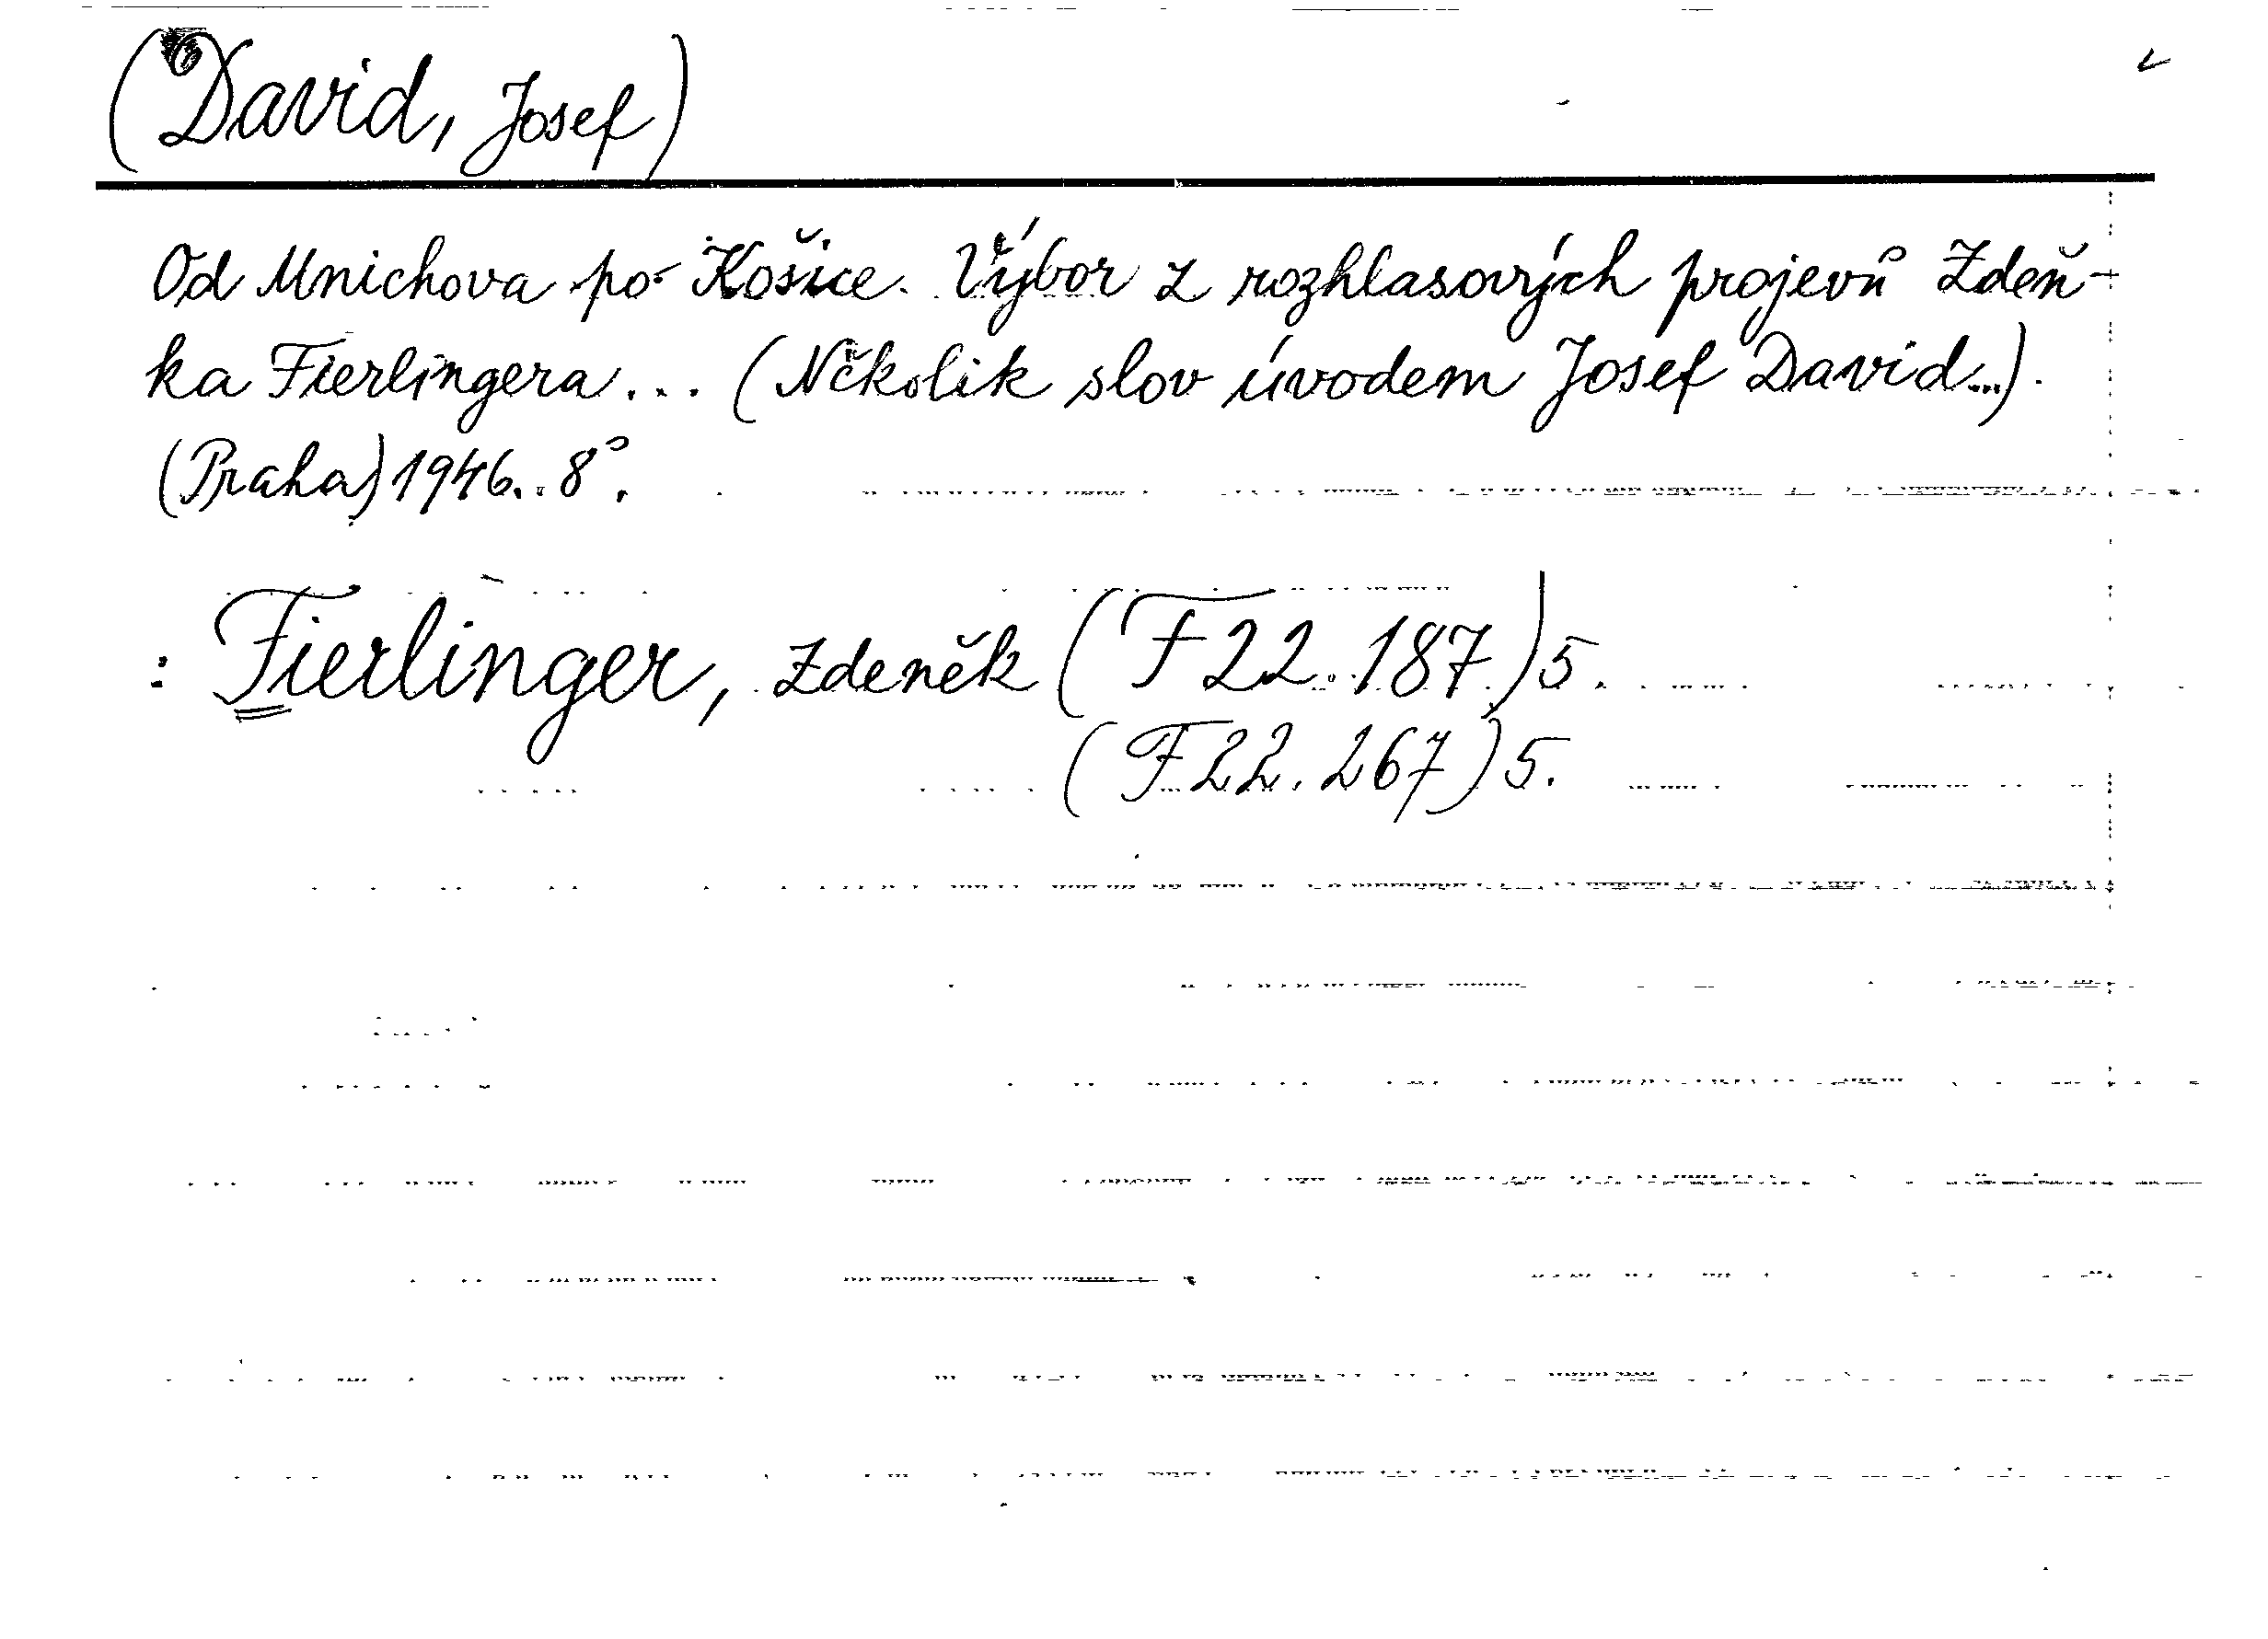 (David, Josef)
Od Mnichova po Košice. Výbor z rozhlasových projevů Zdeň-
ka Fierlingera... (Několik slov úvodem Josef David...).
(Praha) 1946. 8°.
: Fierlinger, Zdeněk (F 22.187) 5.
(F 22.267) 5.